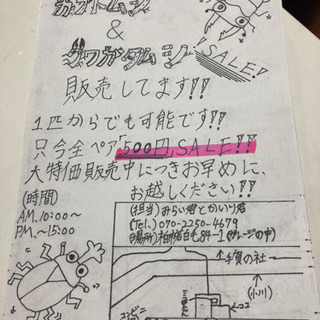 カブトムシ
&
クワガタムシ SALE!
販売してます!!
1匹からでも可能です!!
只今全ペア「500円」SALE!!!
大特価販売中につきお早めに、
お越しください!!
(時間)
AM.10:00〜
PM.〜15:00
(担当)みらい君とかい君
(Tel.) 070-2250-4679
(場所) 84-1(ガレージの中)
手賀の杜
(小川)
コンビニ
ココ